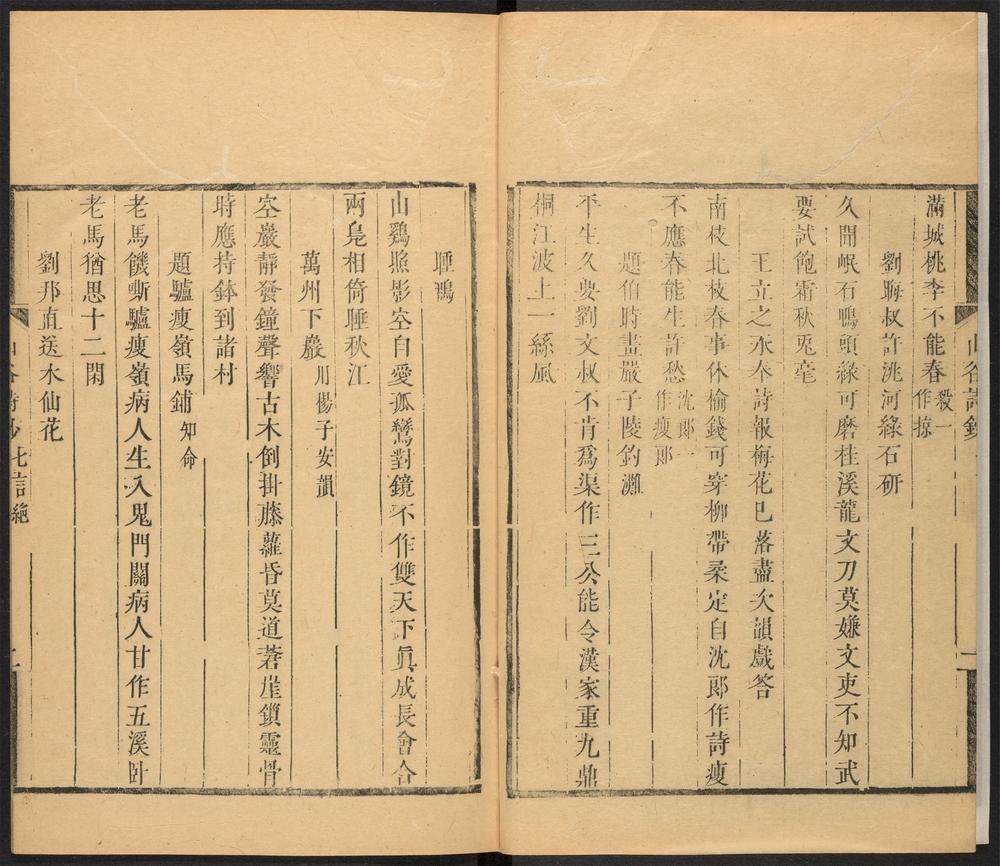 滿城桃李不能春 毅一作掠
劉晦叔許洮河綠石研
久聞岷石鴨頭綠可磨桂溪龍文刀莫嫌文吏不知武
要試飽霜秋兎毫
王立之承奉詩報梅花已落盡次韻戲答
南枝北枝春事休榆錢可穿柳帶柔定自沈郎作詩瘦
不應春能生許愁 沈郎一作瘦郎
題伯時畫嚴子陵釣灘
平生久要劉文叔不肯爲渠作三公能令漢家重九鼎
桐江波上一絲風
睡鴨
山鷄照影空自愛孤鸞對鏡不作雙天下眞成長會合
兩鳧相倚睡秋江
萬州下巖 用楊子安韻
空巖靜發鐘聲響古木倒掛藤蘿昏莫道蒼崖鎖靈骨
時應持鉢到諸村
題驢瘦嶺馬鋪 知命
老馬饑嘶驢瘦嶺病人生入鬼門關病人甘作五溪卧
老馬猶思十二閑
劉邦直送水仙花